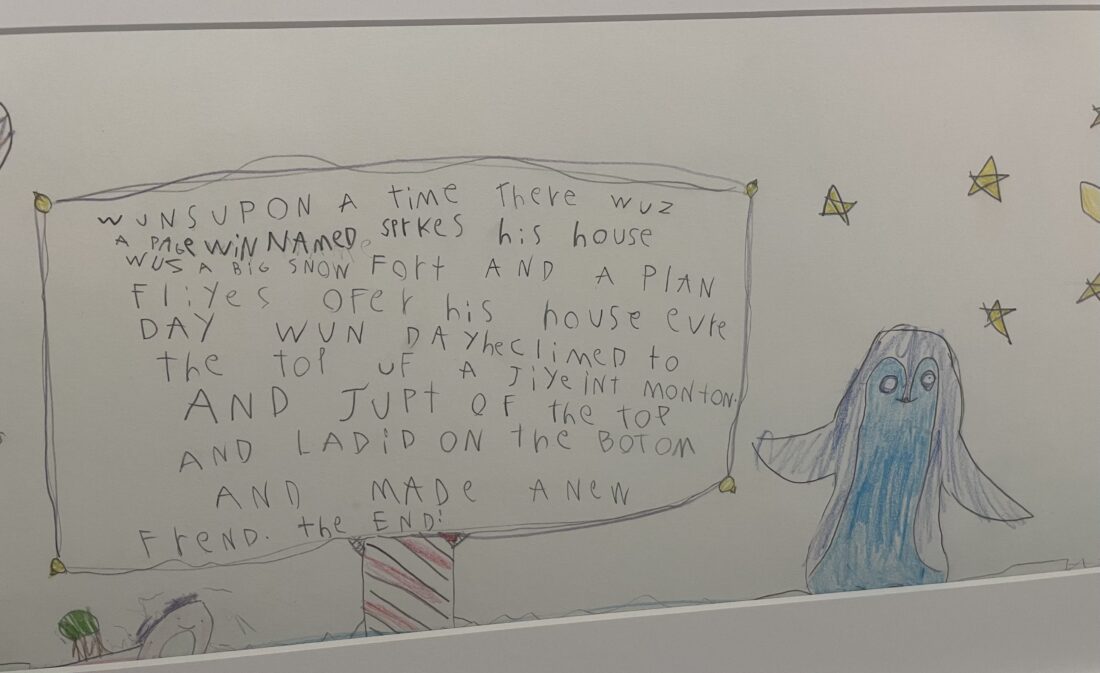 WUNSUPON A time There wuz
A PAGe WiN NAMeD. sprkes his house
WUS A BiG SNOW FOrt AND A PlAN
Fliyes OFer his house evre
DAY WUN DAY he climeD to
the toP uF A JiYeiNt MONtON.
AND JUPt OF the toP
AND LADiD ON the BOTOM
AND MADe A New
FreND. the END!